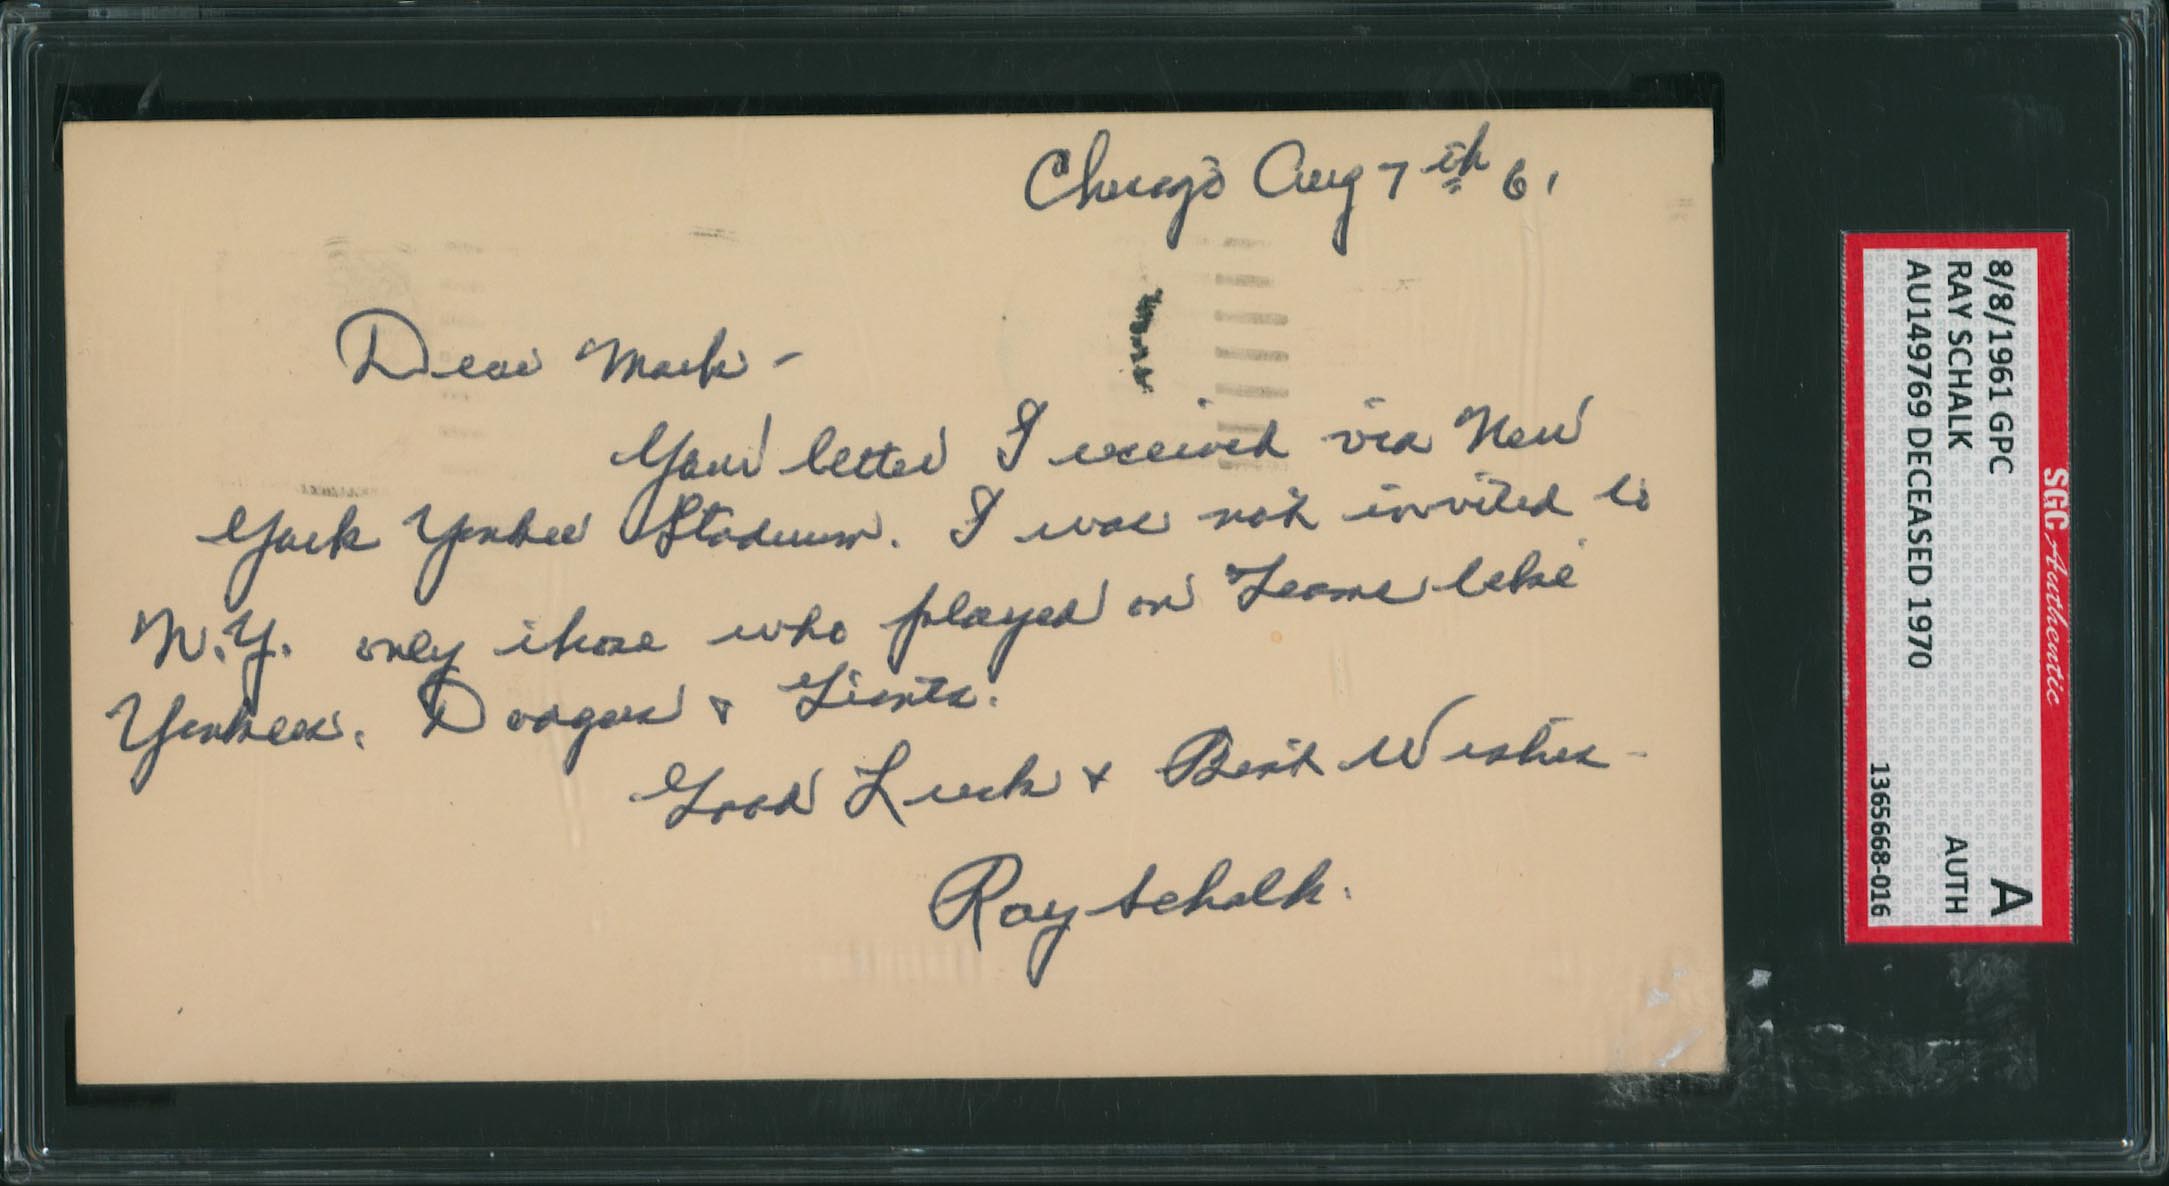 Chicago Aug 7th 61
Dear Mark -
Your letter I received via New
York Yankee Stadium. I was not invited to
N.Y. only those who played on Teams like
Yankees, Dodgers & Giants.
Good Luck & Best Wishes -
Ray Schalk.
SGC Authentic
8/8/1961 GPC
RAY SCHALK
AU149769 DECEASED 1970
A
AUTH
1365668-016